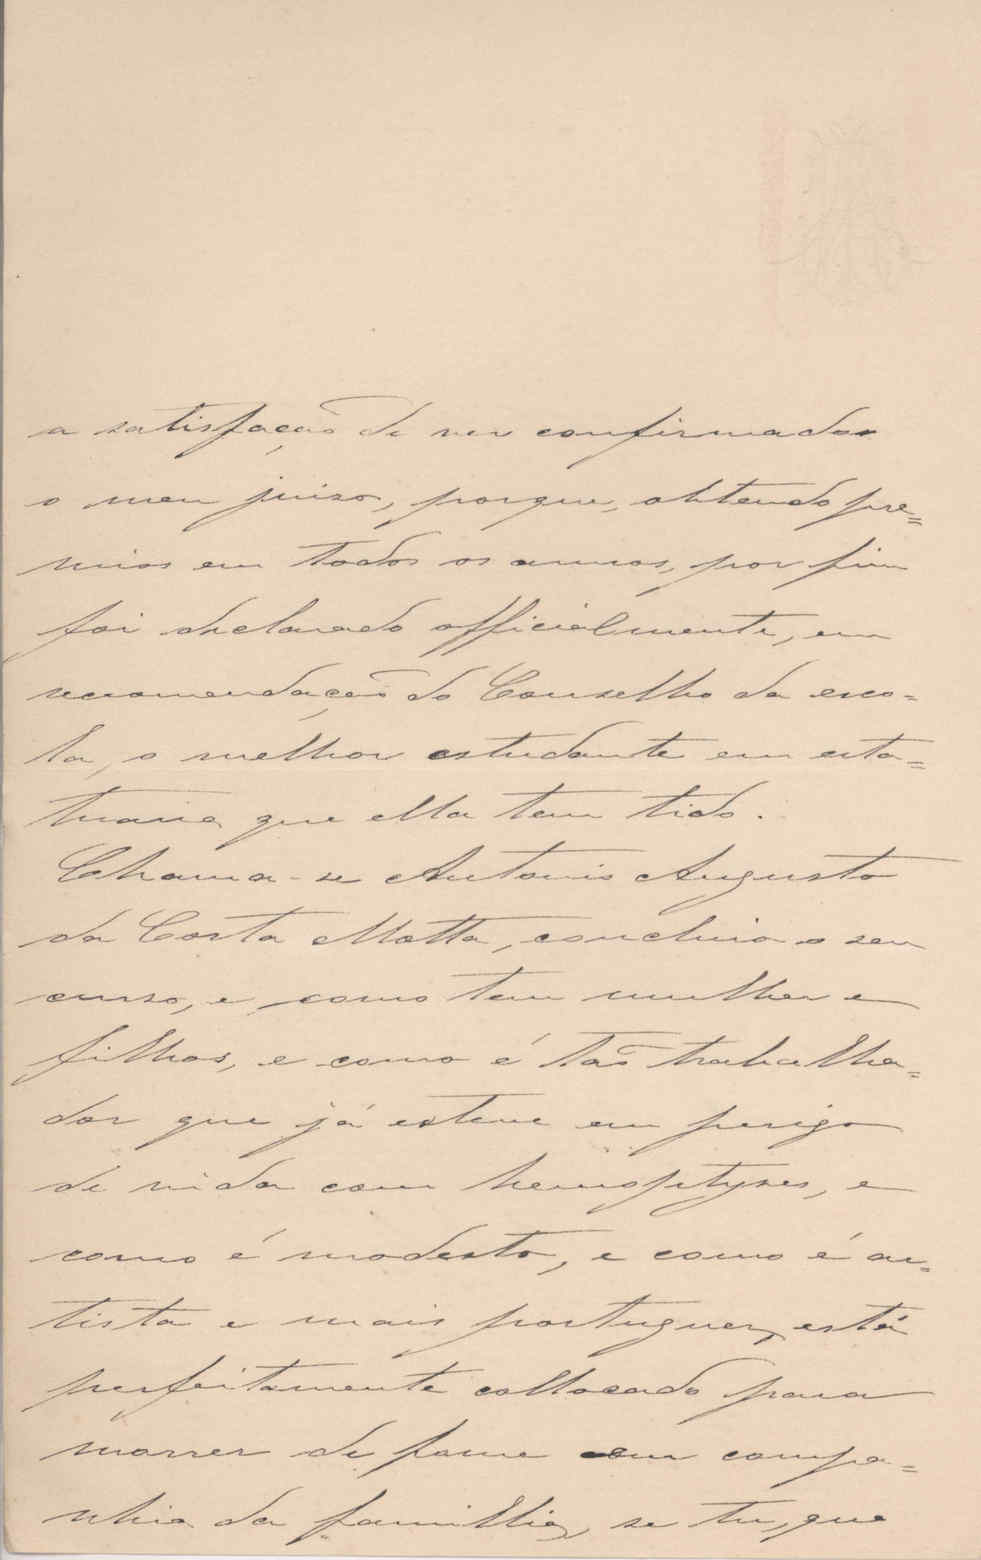 a satisfação de ver confirmado
o meu juiso, porque, obtendo pre=
mios em todos os annos, por fim
foi declarado officialmente, em
recomendação do Conselho da esco=
la, o melhor estudante em esta=
tuaria que ella tem tido.
Chama-se Antonio Augusto
da Costa Motta, concluio o seu
curso, e, como tem mulher e
filhos, e como é tão trabalha=
dor que já esteve em perigo
de vida com hemoptyses, e
como é modesto, e como é ar=
tista e mais portuguez, está
perfeitamente collocado para
morrer de fome em compa=
nhia da familia, se tu, que